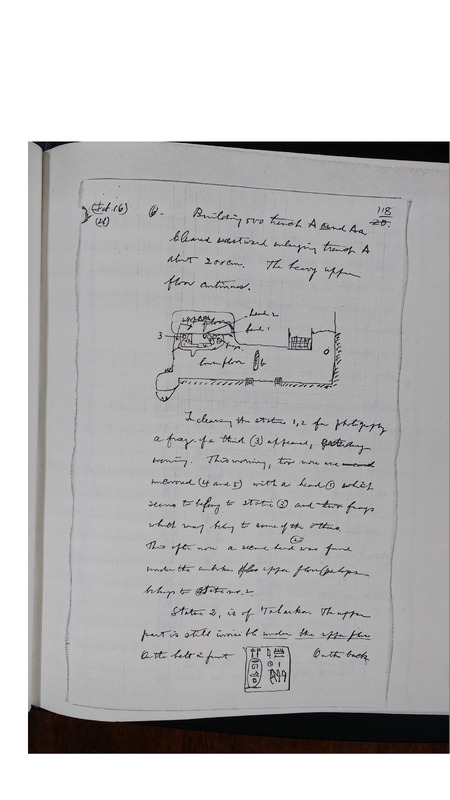 (Feb 16)
118
(21)
20.
Building 500 trench A and Aa
Cleared westward enlarging trench A
about 200 cm. The heavy upper
floor continues.
upper floor
head 2
head 1
3
lower floor
b
In clearing the statues 1, 2 for photography
a frag. of a third (3) appeared, yesterday
evening. This morning, two more were
uncovered (4 and 5) with a head ① which
seems to belong to statue ③ and two frags
which may belong to some of the others.
This afternoon a second head ② was found
under the upper floor (perhaps
belongs to statue no. 2.
Statue 2, is of Taharka. The upper
part is still invisible under the upper floor
On the belt in front
On the back